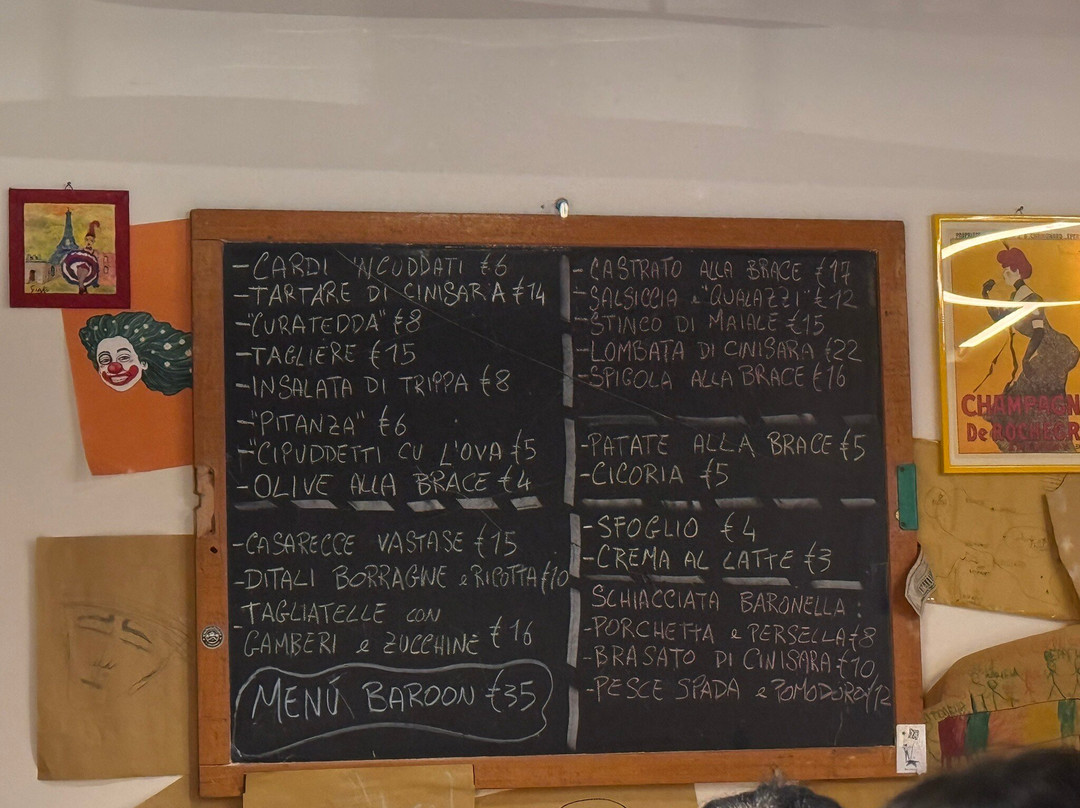 - CARDI 'NCUDDATI €6
- TARTARE DI CINISARA €14
- "CURATEDDA" €8
- TAGLIERE €15
- INSALATA DI TRIPPA €8
- "PITANZA" €6
- "CIPUDDETTI CU L'OVA €5
- OLIVE ALLA BRACE €4
- CASARECCE VASTASE €15
- DITALI BORRAGINE e RICOTTA €10
- TAGLIATELLE CON
GAMBERI e ZUCCHINE €16
MENÚ BAROON €35
- CASTRATO ALLA BRACE €17
- SALSICCIA e "QUALAZZI" €12
- STINCO DI MAIALE €15
- LOMBATA DI CINISARA €22
- SPIGOLA ALLA BRACE €16
- PATATE ALLA BRACE €5
- CICORIA €5
- SFOGLIO €4
- CREMA AL LATTE €3
SCHIACCIATA BARONELLA:
- PORCHETTA e PERSELLA €8
- BRASATO DI CINISARA €10
- PESCE SPADA e POMODORO €12
CHAMPAGN
De ROCHEGR